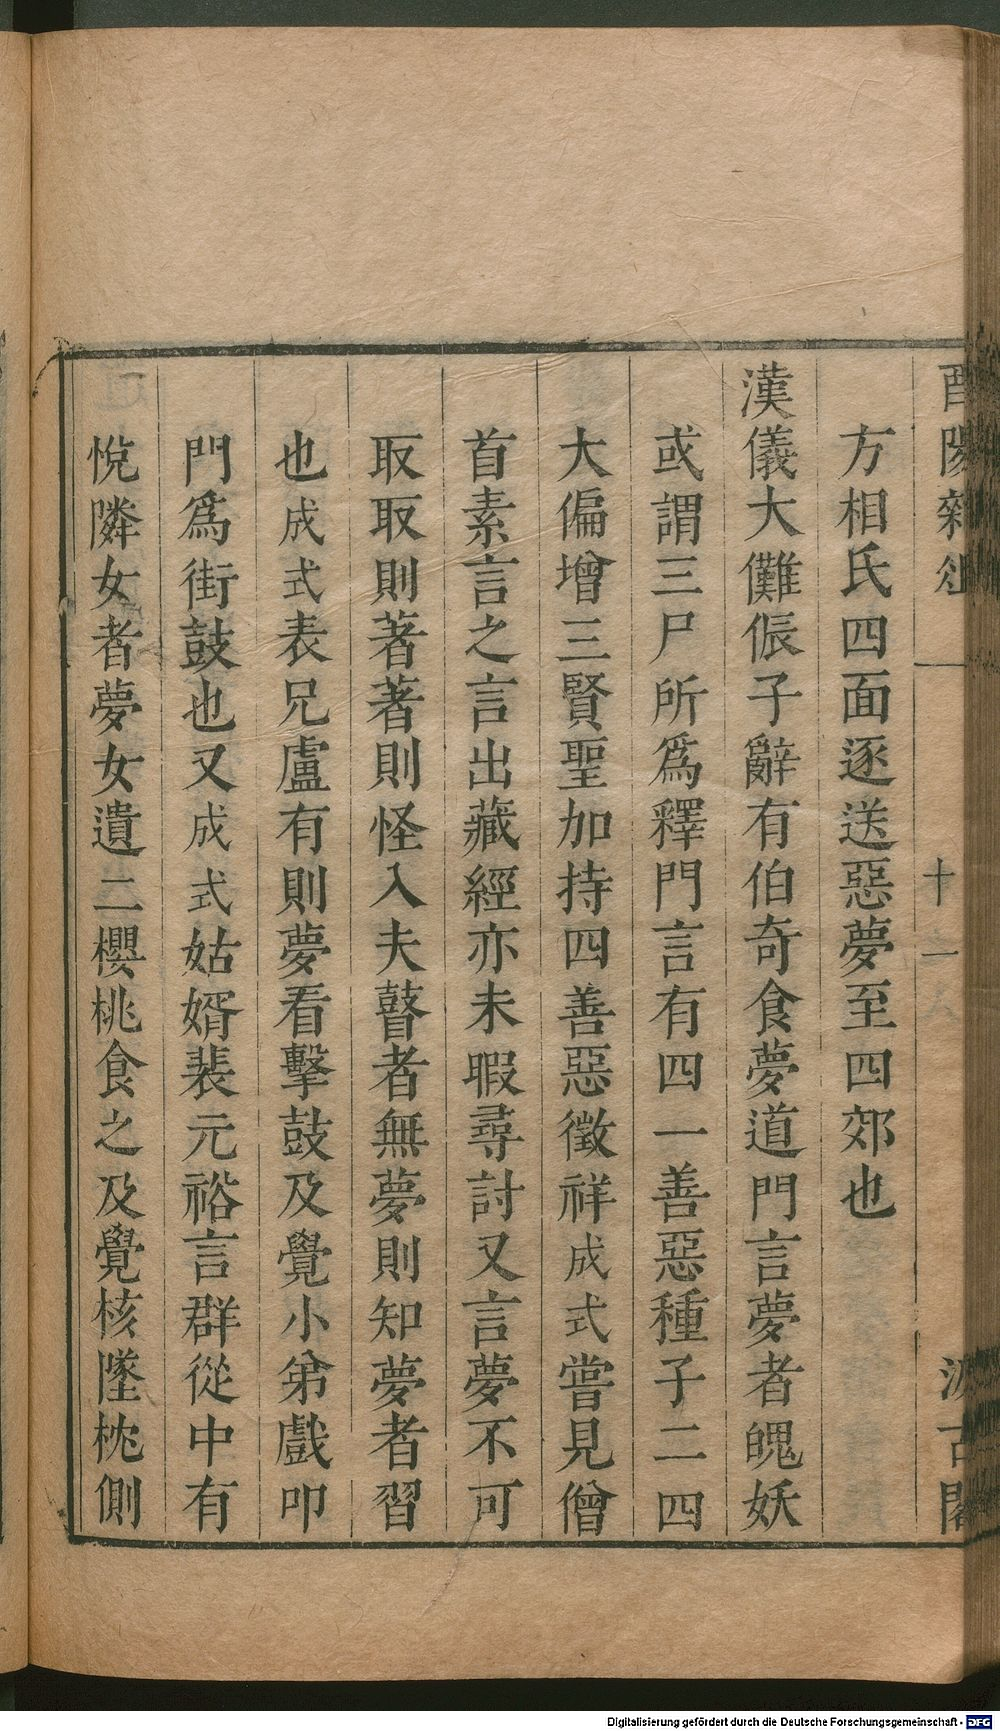 酉陽雜俎
十一
汲古閣
方相氏四面逐送惡夢至四郊也
漢儀大儺侲子辭有伯奇食夢道門言夢者魄妖
或謂三尸所爲釋門言有四一善惡種子二四
大偏增三賢聖加持四善惡徵祥成式嘗見僧
首素言之言出藏經亦未暇尋討又言夢不可
取取則著著則怪入夫瞽者無夢則知夢者習
也成式表兄盧有則夢看擊鼓及覺小弟戲叩
門爲街鼓也又成式姑婿裴元裕言群從中有
悅隣女者夢女遺二櫻桃食之及覺核墜枕側
Digitalisierung gefördert durch die Deutsche Forschungsgemeinschaft - DFG